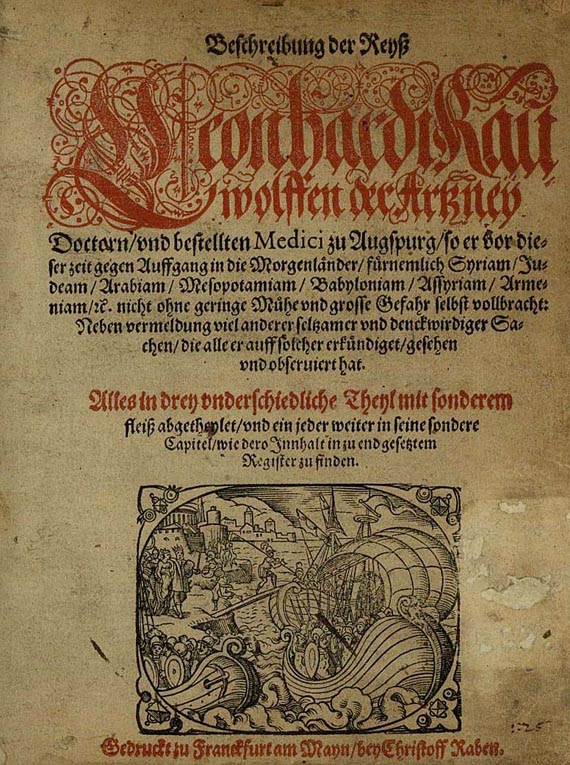 Beschreibung der Reyß
Leonhardi Rau
wolffen der Artzney
Doctorn/vnd bestellten Medici zu Augspurg/so er vor die-
ser zeit gegen Auffgang in die Morgenländer/fürnemlich Syriam/Ju-
deam/Arabiam/Mesopotamiam/Babyloniam/Assyriam/Arme-
niam/ꝛc. nicht ohne geringe Mühe vnd grosse Gefahr selbst vollbracht:
Neben vermeldung viel anderer seltzamer vnd denckwirdiger Sa-
chen/die alle er auff solcher erkündiget/gesehen
vnd obseruiert hat.
Alles in drey vnderschiedliche Theyl mit sonderem
fleiß abgetheylet/vnd ein jeder weiter in seine sondere
Capitel/wie dero Innhalt in zu end gesetztem
Register zu finden.
Gedruckt zu Franckfurt am Mayn/bey Christoff Raben.